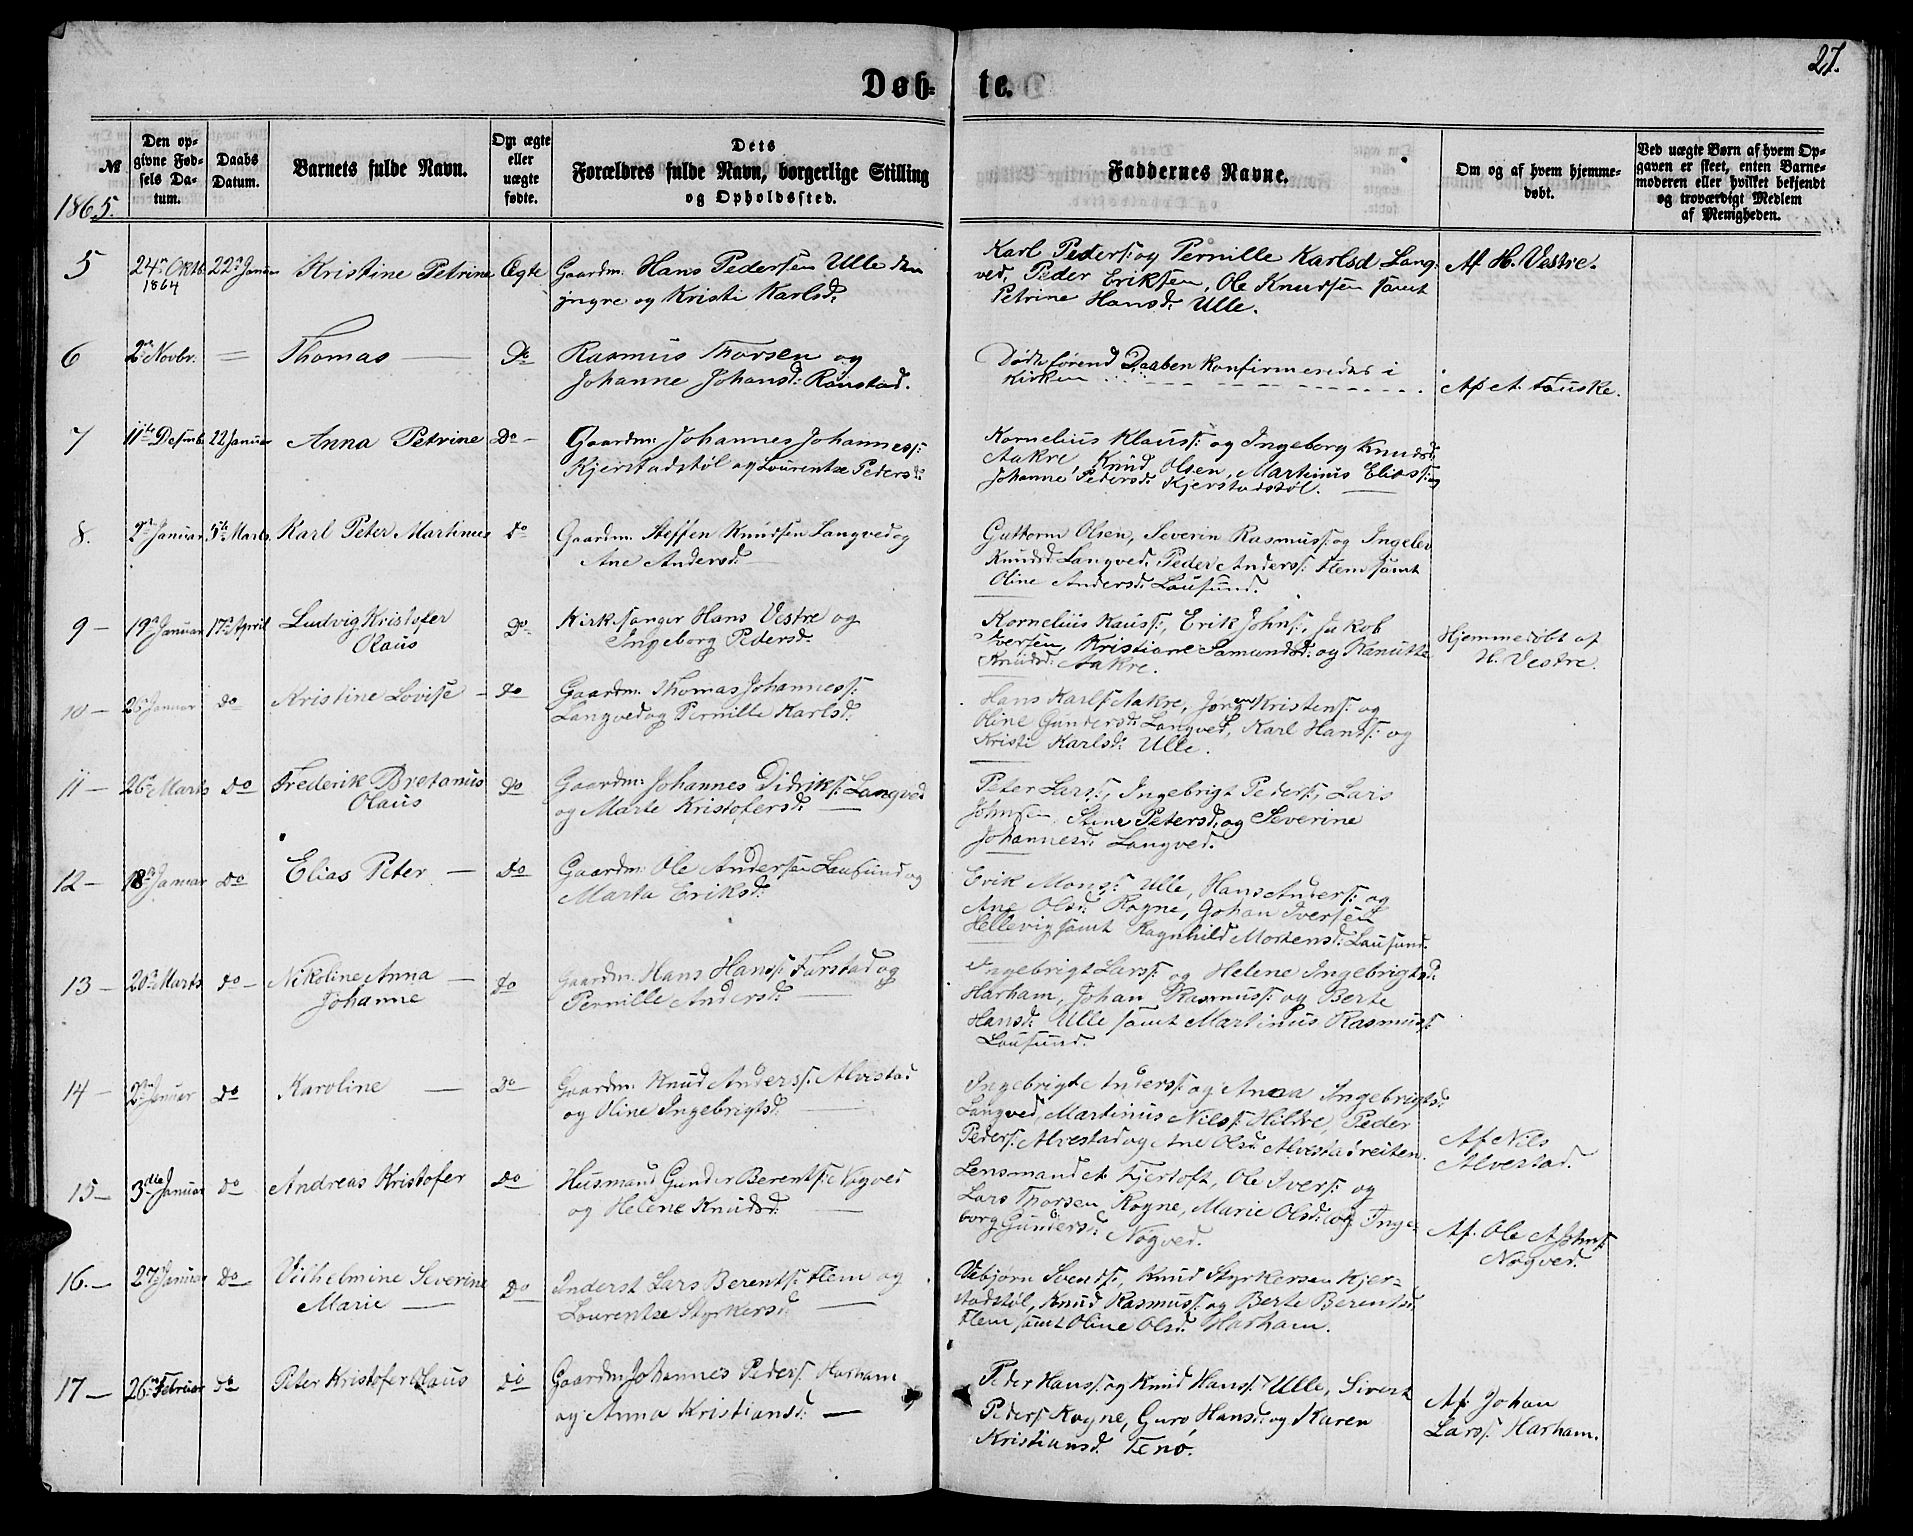 27.
Døb- te.
1865.
№
Den op-
givne Fød-
sels Da-
tum.
Daabs
Datum.
Barnets fulde Navn.
Om ægte
eller
uægte
fødte.
Dets
Forældres fulde Navn, borgerlige Stilling
og Opholdssted.
Faddernes Navne.
Om og af hvem hjemme-
døbt.
Ved uægte Børn af hvem Op-
gaven er skeet, enten Barne-
moderen eller hvilket bekjendt
og troværdigt Medlem
af Menigheden.
5 24de Oktb. 22de Januar Kristine Petrine Ægte Gaardm: Hans Pedersen Ulle den
1864
yngre og Kristi Karlsd:
Karl Peders: og Pernille Karlsd Lang-
ved, Peder Eriksen, Ole Knudsen samt
Petrine Hansd: Ulle.
Af H. Vestre.
6 2den Novbr. = Thomas — Do Rasmus Thorsen og
Johanne Johansd: Ranstad.
Døde førend Daaben Konfirmeredes i
Kirken
Af A. Fauske.
7 11te Desmb. 22 Januar Anna Petrine Do — Gaardm: Johannes Johanness:
Kjerstadstøl og Lourentze Pedersd:
Kornelius Klauss: og Ingeborg Knudsd:
Aakre, Knud Olsen, Martinus Elias: og
Johanne Pedersd: Kjerstadstøl. —
8. 2den Januar 5te Marts. Karl Peter Martinus Do Gaardm: Steffen Knudsen Langved og
Ane Andersd: —
Guttorm Olsen, Severin Rasmuss: og Ingelev
Knudsd: Langved, Peder Anders: Flem samt
Oline Andersd: Lausund.
9 — 19de Januar 17de April Ludvig Kristofer Do. Kirkesanger Hans Vestre og
Olaus
Ingeborg Pedersd:
Kornelius Klauss:, Erik Johns:, Jakob
Iversen, Kristiane Samundsd: og Kanutte
Knudsd: Aakre.
Hjemmedøbt af
H. Vestre.
10 — 25 Januar Do Kristine Lovise — Do Gaardm: Thomas Johanness:
Langved og Pernille Karlsd:
Hans Karls: Aakre, Jørgen Kristens: og
Oline Gundersd: Langved, Karl Hans: og
Kristi Karlsd: Ulle.
11 — 26de Marts Do Frederik Bretanus Do Gaardm: Johannes Didriks: Langved
Olaus
og Marte Kristofersd: —
Peter Lars:, Ingebrigt Peders:, Lars
Johnsen, Stine Petersd: og Severine
Johannesd: Langved.
12 — 18de Januar Do Elias Peter — Do Gaardm: Ole Andersen Lausund og
Marta Eriksd:
Erik Mons: Ulle, Hans Anders: og
Ane Olsd: Rogne, Johan Iversen
Hellevig samt Ragnhild Mortensd: Lausund.
13 — 20de Marts Do — Nikoline Anna — Do Gaardm: Hans Hans: Furstad og
Johanne
Pernille Andersd: —
Ingebrigt Lars: og Helene Ingebrigtsd:
Harham, Johan Rasmuss: og Berte
Hansd: Ulle samt Martinus Rasmuss:
Lausund.
14 — 2den Januar Do Karoline — Do Gaardm: Knud Anders: Alvestad
og Oline Ingebrigtsd: —
Ingebrigt Anders: og Anna Ingebrigtsd:
Langved, Martinus Nils: Hildre, Peder
Peders: Alvestad og Ane Olsd: Alvestadreiten.
Af Nils
Alvestad.
15 — 3die Januar Do Andreas Kristofer Do Husmand Gunder Berents: Nogved
og Helene Knudsd: —
Lensmand A. Fjertoft, Ole Ivers: og
Lars Thorsen Rogne, Marie Olsd: og Inge-
borg Gundersd: Nogved.
Af. Ole A Johns:
Nogved.
16. — 27de Januar Do Vilhelmine Severine Do Inderst Lars Berents: Flem og
Marie —
Lourentze Styrkersd: —
Vebjørn Svends:, Knud Styrkersen Kjer-
stadstøl, Knud Rasmuss: og Berte Berentsd:
Flem samt Oline Olsd: Harham.
17 — 26de Februar Do Peter Kristofer Olaus Do Gaardm Johannes Peders: Harham
og Anna Kristiansd: —
Peder Hans: og Knud Hans: Ulle, Sivert
Peders: Rogne, Guro Hansd: og Karen
Kristiansd: Fenø.
Af Johan
Lars: Harham.